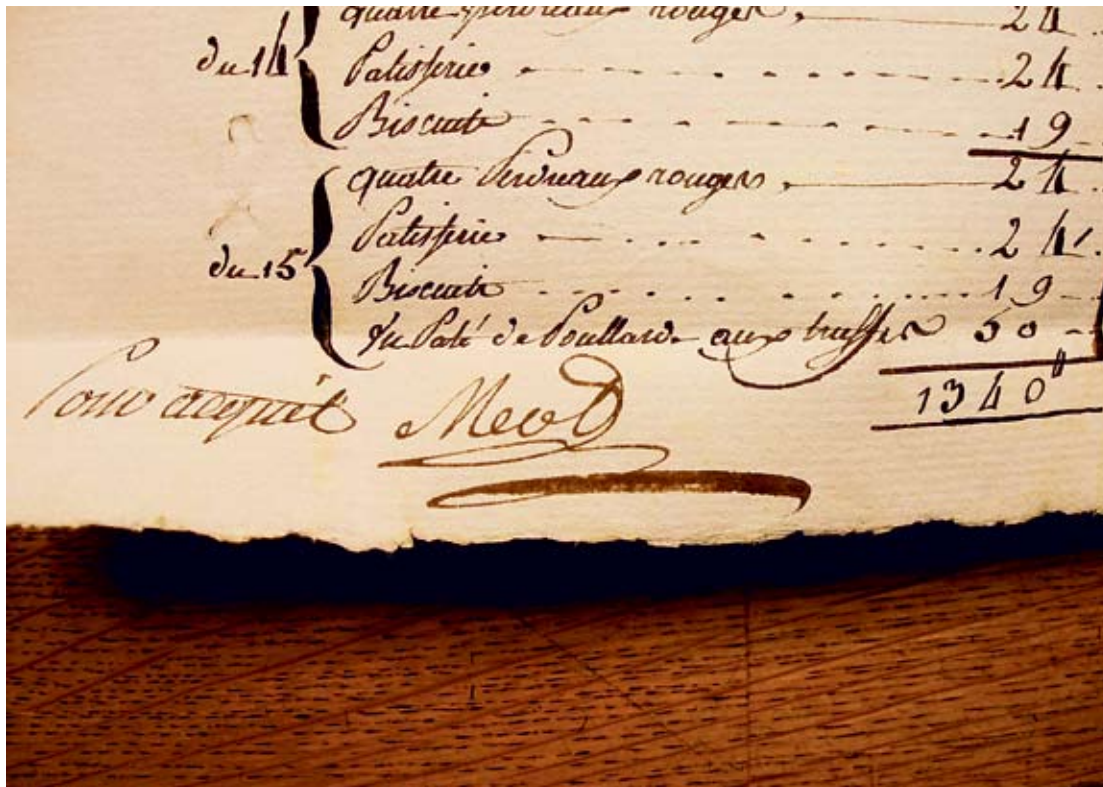 quatre perdreaux rouges, 24
du 14 Patisserie 24
Biscuits 19
quatre Perdreaux rouges, 24
Patisserie 24
du 15 Biscuits 19
Un Paté de Poullarde aux truffes 50
1340"
Pour acquit Meot